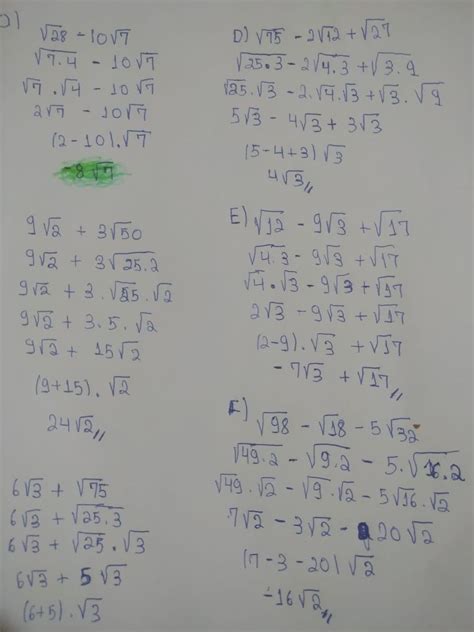 √28 - 10√7
√7.4 - 10√7
√7 . √4 - 10√7
2√7 - 10√7
(2-10).√7
-8√7
9√2 + 3√50
9√2 + 3√25.2
9√2 + 3.√25.√2
9√2 + 3.5.√2
9√2 + 15√2
(9+15).√2
24√2//
6√3 + √75
6√3 + √25.3
6√3 + √25.√3
6√3 + 5√3
(6+5).√3
D) √75 - 2√12 + √27
√25.3 - 2√4.3 + √3.9
√25.√3 - 2.√4.√3 + √3.√9
5√3 - 4√3 + 3√3
(5-4+3)√3
4√3//
E) √12 - 9√3 + √17
√4.3 - 9√3 + √17
√4.√3 - 9√3 + √17
2√3 - 9√3 + √17
(2-9).√3 + √17
-7√3 + √17//
√98 - √18 - 5√32
√49.2 - √9.2 - 5.√16.2
√49.√2 - √9.√2 - 5√16.√2
7√2 - 3√2 - 20√2
(7-3-20)√2
-16√2//